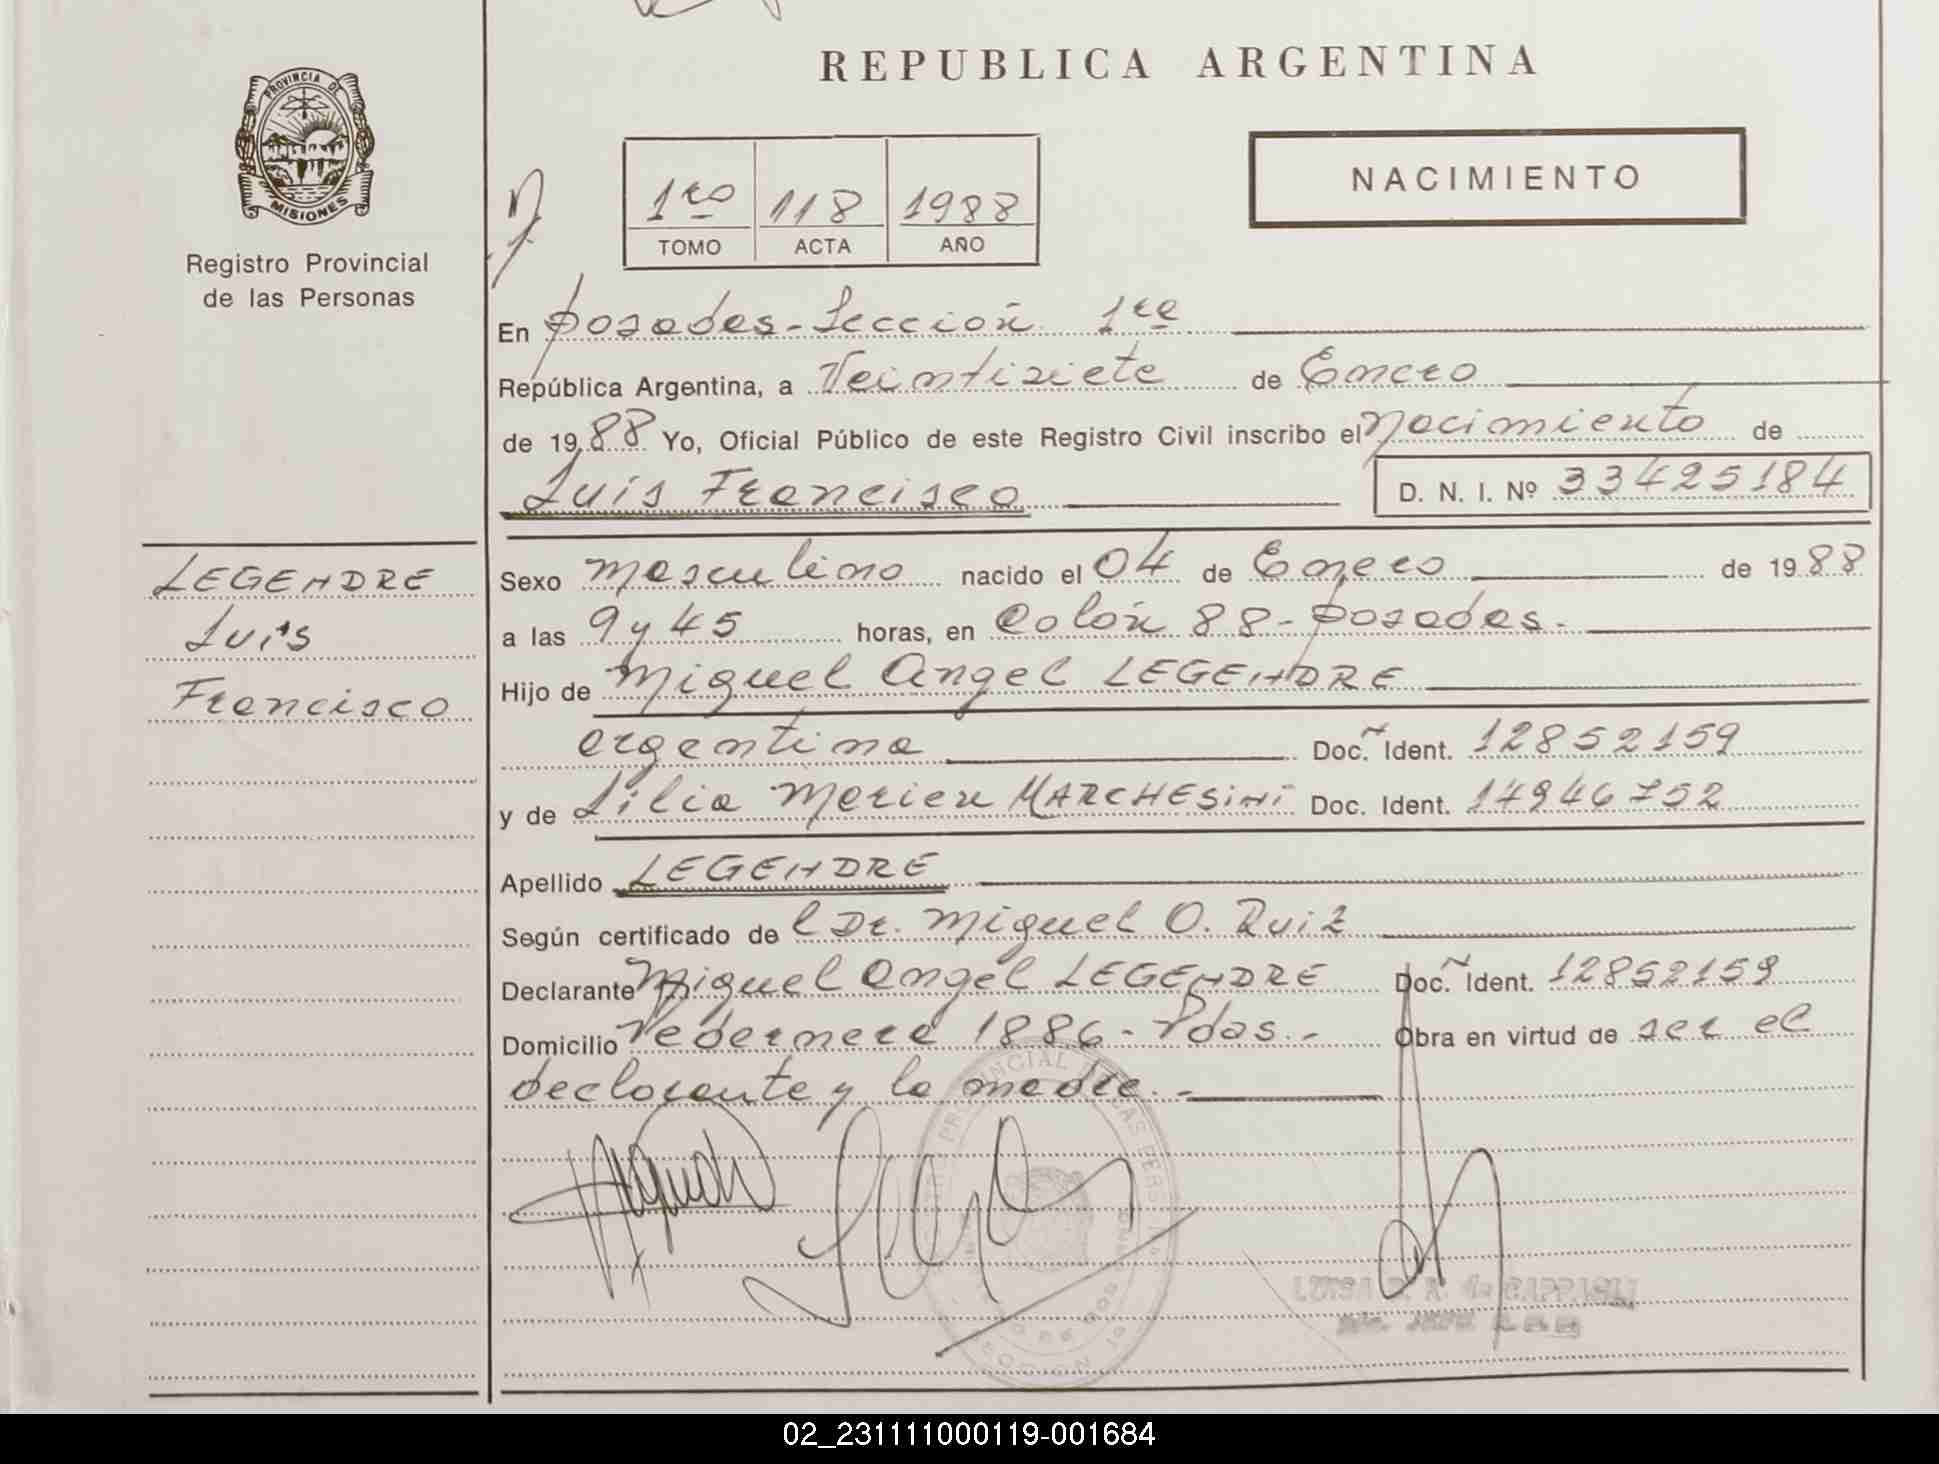 REPUBLICA ARGENTINA
PROVINCIA DE
MISIONES
Registro Provincial
de las Personas
NACIMIENTO
1ro 118 1988
TOMO ACTA AÑO
En Posadas - Sección 1ra
República Argentina, a Veintisiete de Enero
de 1988 Yo, Oficial Público de este Registro Civil inscribo el Nacimiento de
Luis Francisco D. N. I. Nº 33425184
LEGENDRE
Luis
Francisco
Sexo masculino nacido el 04 de Enero de 1988
a las 9 y 45 horas, en Colón 88 - Posadas.
Hijo de Miguel Angel LEGENDRE
argentina Doc. Ident. 12852159
y de Lilia Marien MARCHESINI Doc. Ident. 14946752
Apellido LEGENDRE
Según certificado de l Dr. Miguel O. Ruiz
Declarante Miguel Angel LEGENDRE Doc. Ident. 12852159
Domicilio Pedernera 1886 - Pdas. - Obra en virtud de ser el
declarante y la madre. -
LUISA
02_231111000119-001684